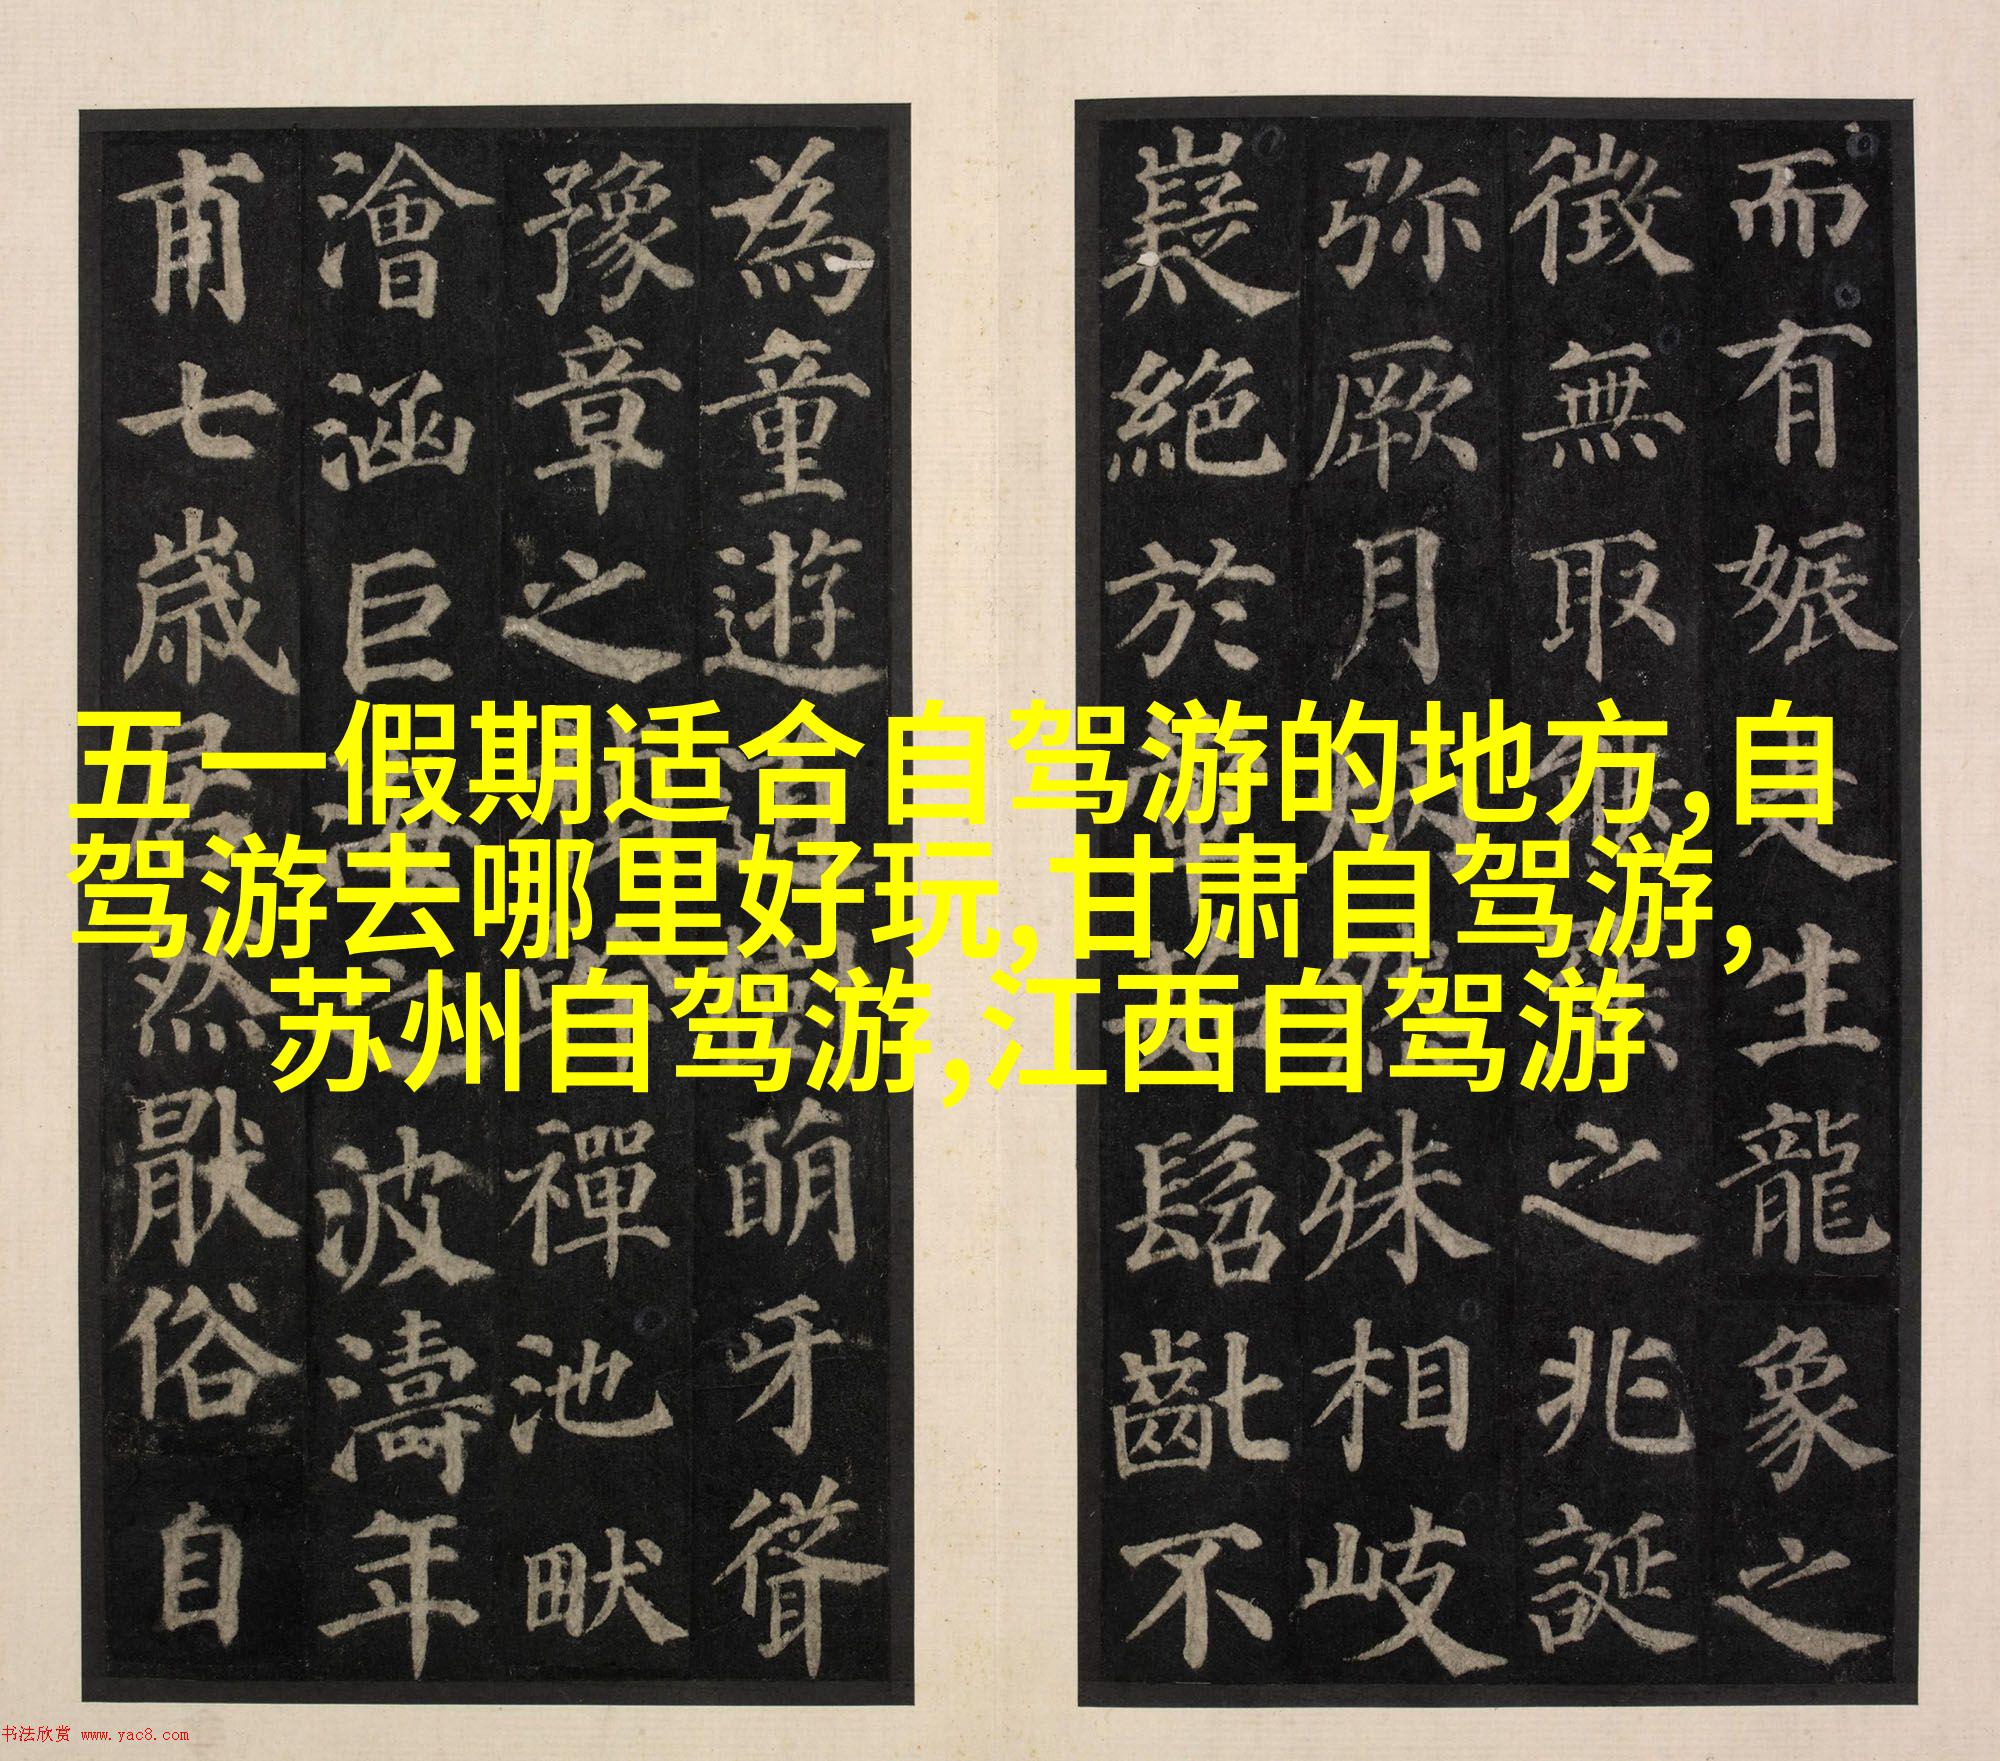 而有娠是生龍象之
徵無取熊羆之兆誕
弥厥月炳然殊相岐
嶷絕於葷茹髫齔不
為童遊道樹萌牙聳
豫章之楨幹禪池畎
澮涵巨海之波濤年
甫七歲居然厭俗自
五一假期适合自驾游的地方,自
驾游去哪里好玩,甘肃自驾游,
苏州自驾游,江西自驾游
书法欣赏 www.yac8.com